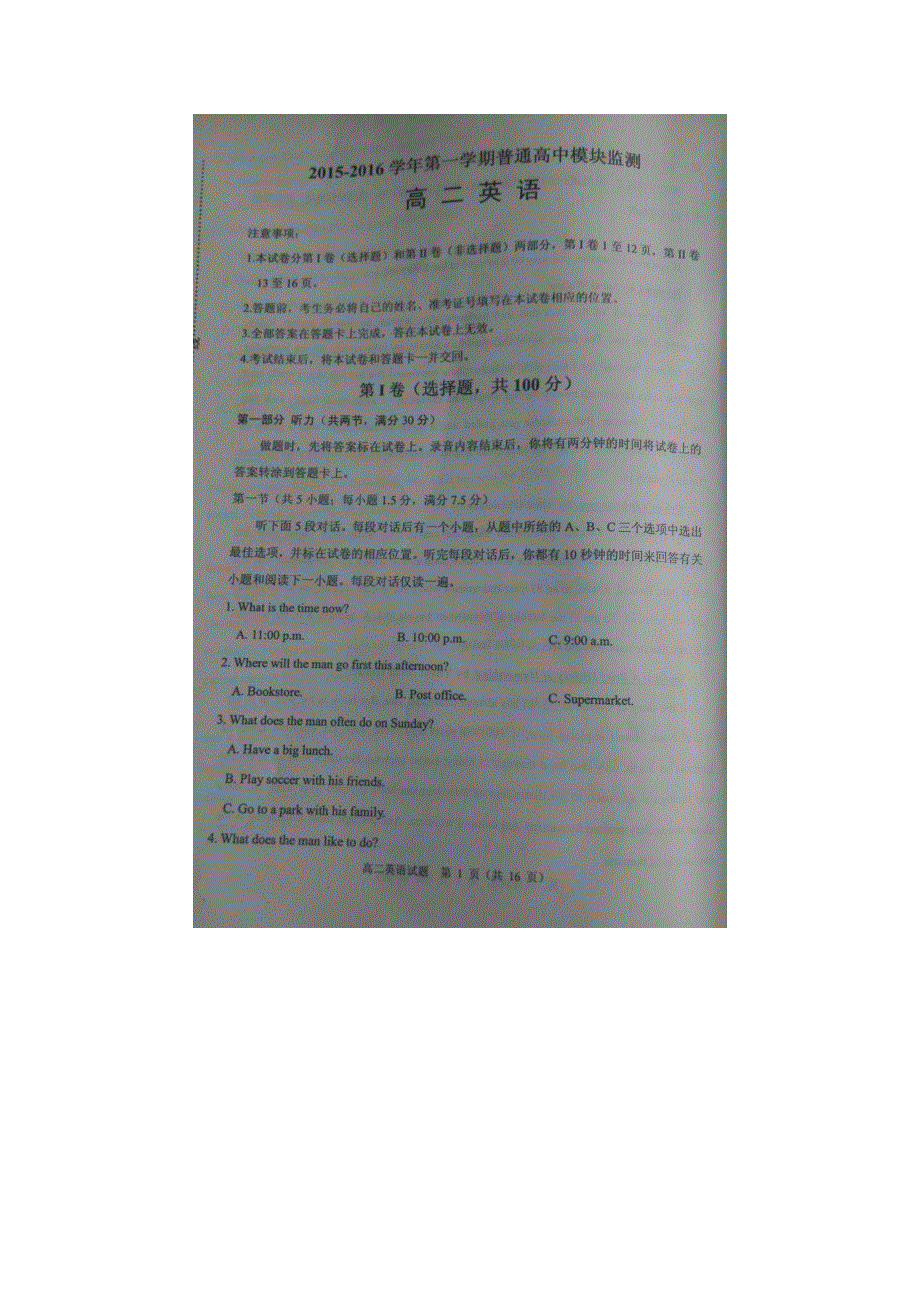 2015-2016 学年第一学期普通高中模块监测
高 二 英 语
注意事项:
1.本试卷分第 I 卷(选择题)和第 II 卷(非选择题)两部分,第 I 卷 1 至 12 页,第 II 卷
13 至 16 页。
2.答题前,考生务必将自己的姓名、准考证号填写在本试卷相应的位置。
3.全部答案在答题卡上完成,答在本试卷上无效。
4.考试结束后,将本试卷和答题卡一并交回。
第 I 卷(选择题,共 100 分)
第一部分 听力(共两节,满分 30 分)
做题时,先将答案标在试卷上。录音内容结束后,你将有两分钟的时间将试卷上的
答案转涂到答题卡上。
第一节(共 5 小题;每小题 1.5 分,满分 7.5 分)
听下面 5 段对话。每段对话后有一个小题,从题中所给的 A、B、C 三个选项中选出
最佳选项,并标在试卷的相应位置。听完每段对话后,你都有 10 秒钟的时间来回答有关
小题和阅读下一小题。每段对话仅读一遍。
1. What is the time now?
A. 11:00 p.m. B. 10:00 p.m. C. 9:00 a.m.
2. Where will the man go first this afternoon?
A. Bookstore. B. Post office. C. Supermarket.
3. What does the man often do on Sunday?
A. Have a big lunch.
B. Play soccer with his friends.
C. Go to a park with his family.
4. What does the man like to do?
高二英语试题 第 1 页(共 16 页)